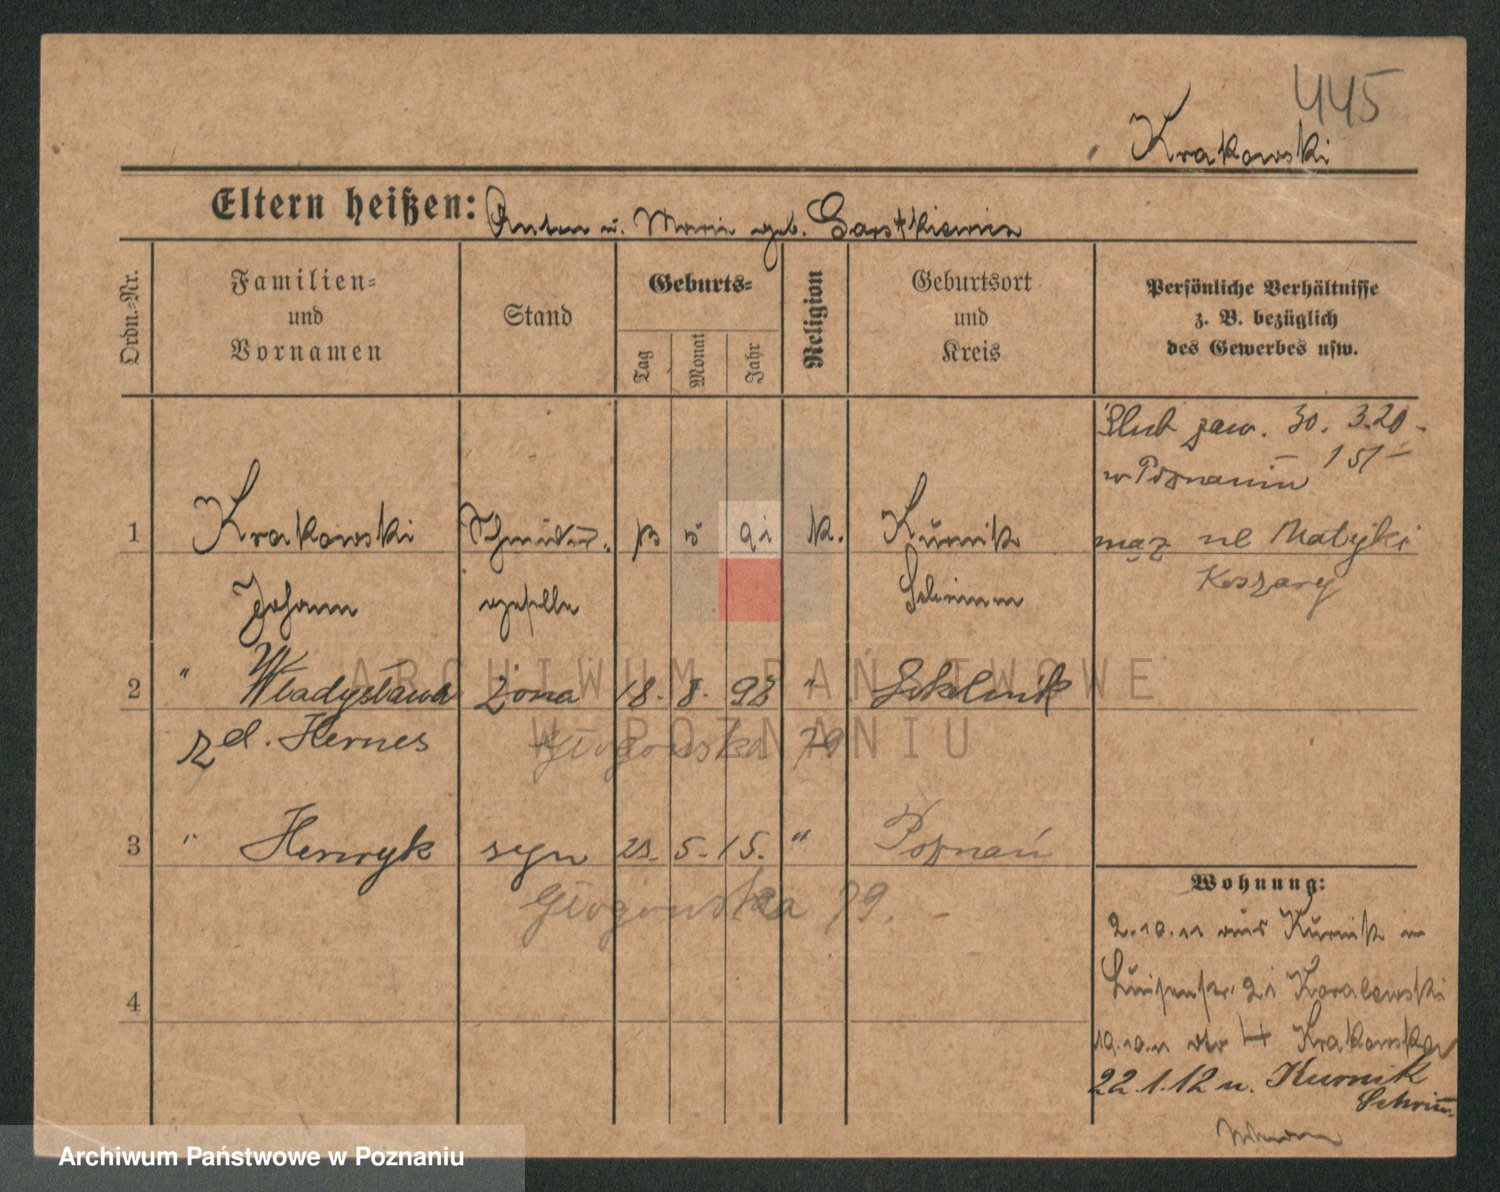 445
Krakowski
Eltern heißen: Anton u. Maria geb.
Ordn.-Nr.
Familien-
und
Vornamen
Stand
Geburts-
Tag
Monat
Jahr
Religion
Geburtsort
und
Kreis
Persönliche Verhältnisse
z. B. bezüglich
des Gewerbes usw.
Ślub zaw. 30. 3.20
w Poznaniu
1 Krakowski Schneider- 91 k. Kurnik
mąż ul Matyki
Koszary
Johann geselle Schrimm
2 " Władysława żona 18. 8. 93 "
zd. Hernes Głogowska 79
3 " Henryk syn 23. 5. 15. " Poznań
Głogowska 79.
4
Wohnung:
2.10.11 aus Kurnik in
Luisenstr. 21 Kowalewski
19.10.11 4 Krakowska
22.1.12 n. Kurnik
Schrim.
ARCHIWUM PAŃSTWOWE
W POZNANIU
Archiwum Państwowe w Poznaniu